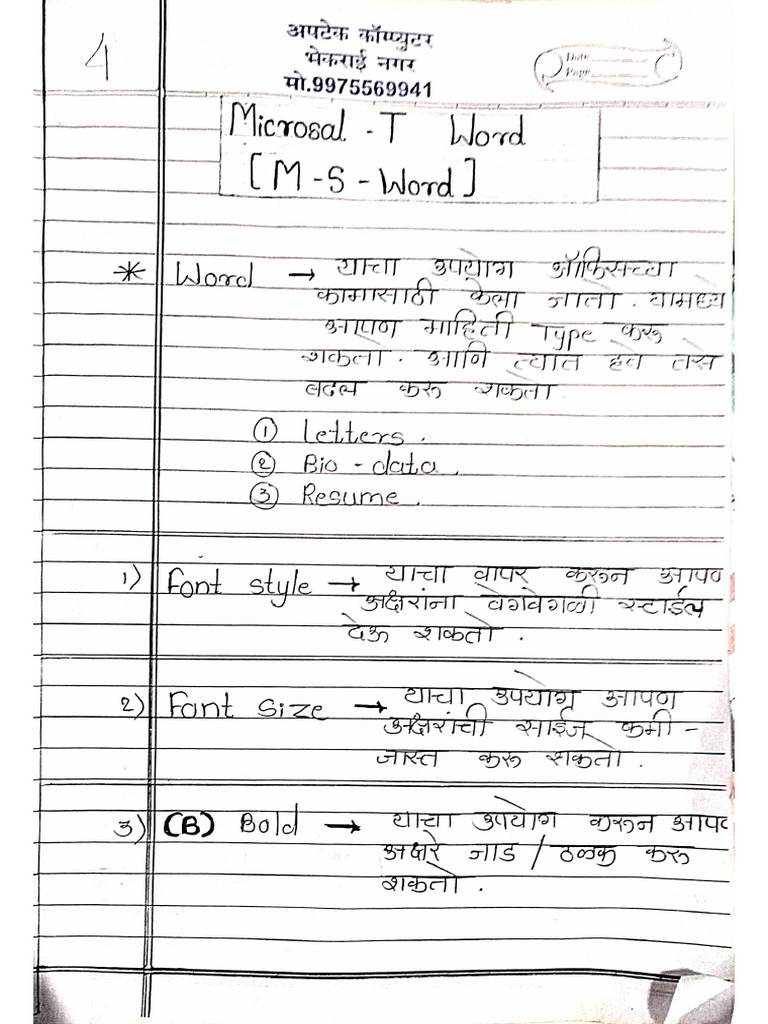 4
अपटेक कॉम्प्युटर
भेकराई नगर
मो.9975569941
Date
Page
Microsal - T Word
[M - S - Word]
* Word → याचा उपयोग ऑफिसच्या
कामासाठी केला जातो. यामध्ये
आपण माहिती Type करू
शकतो. आणि त्यात हवे तसे
बदल करू शकतो.
① Letters.
② Bio - data.
③ Resume.
1) Font style → याचा वापर करून आपण
अक्षरांना वेगवेगळी स्टाईल
देऊ शकतो.
2) Font Size → याचा उपयोग आपण
अक्षरांची साईज कमी -
जास्त करू शकतो.
3) (B) Bold → याचा उपयोग करून आपण
अक्षरे जाड / ठळक करू
शकतो.